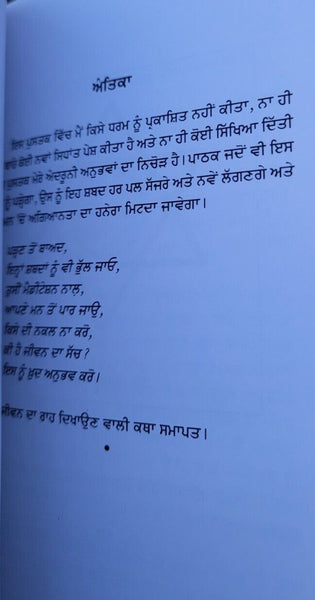 ਅੰਤਿਕਾ
ਇਸ ਪੁਸਤਕ ਵਿੱਚ ਮੈਂ ਕਿਸੇ ਧਰਮ ਨੂੰ ਪ੍ਰਕਾਸ਼ਿਤ ਨਹੀਂ ਕੀਤਾ, ਨਾ ਹੀ
ਕੋਈ ਨਵਾਂ ਸਿਧਾਂਤ ਪੇਸ਼ ਕੀਤਾ ਹੈ ਅਤੇ ਨਾ ਹੀ ਕੋਈ ਸਿੱਖਿਆ ਦਿੱਤੀ
ਪੁਸਤਕ ਮੇਰੇ ਅੰਦਰੂਨੀ ਅਨੁਭਵਾਂ ਦਾ ਨਿਚੋੜ ਹੈ। ਪਾਠਕ ਜਦੋਂ ਵੀ ਇਸ
ਨੂੰ ਪੜ੍ਹੇਗਾ, ਉਸ ਨੂੰ ਇਹ ਸ਼ਬਦ ਹਰ ਪਲ ਸੱਜਰੇ ਅਤੇ ਨਵੇਂ ਲੱਗਣਗੇ ਅਤੇ
ਮਨ 'ਚੋਂ ਅਗਿਆਨਤਾ ਦਾ ਹਨੇਰਾ ਮਿਟਦਾ ਜਾਵੇਗਾ।
ਪੜ੍ਹਣ ਤੋਂ ਬਾਅਦ,
ਇਨ੍ਹਾਂ ਸ਼ਬਦਾਂ ਨੂੰ ਵੀ ਭੁੱਲ ਜਾਓ,
ਤੁਸੀਂ ਮੈਡੀਟੇਸ਼ਨ ਨਾਲ,
ਆਪਣੇ ਮਨ ਤੋਂ ਪਾਰ ਜਾਉ,
ਕਿਸੇ ਦੀ ਨਕਲ ਨਾ ਕਰੋ,
ਕੀ ਹੈ ਜੀਵਨ ਦਾ ਸੱਚ?
ਇਸ ਨੂੰ ਖ਼ੁਦ ਅਨੁਭਵ ਕਰੋ।
ਜੀਵਨ ਦਾ ਰਾਹ ਦਿਖਾਉਣ ਵਾਲੀ ਕਥਾ ਸਮਾਪਤ।